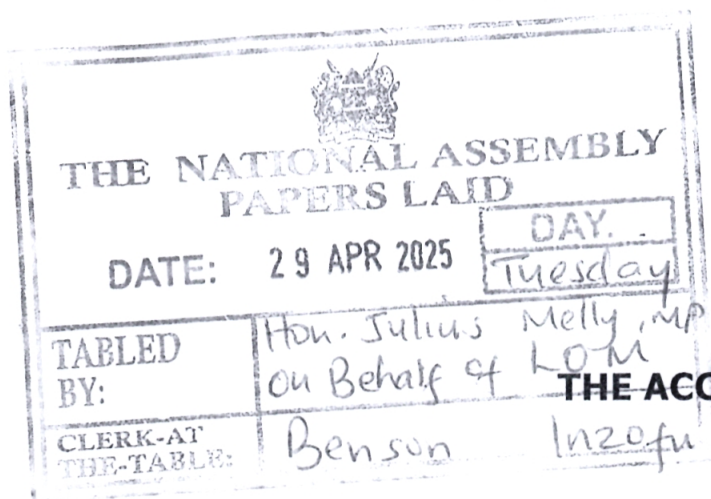 THE NATIONAL ASSEMBLY
PAPERS LAID
DAY.
DATE: 29 APR 2025 Tuesday
TABLED BY: Hon. Julius Melly, MP
on Behalf of LOM
THE ACC
CLERK-AT THE-TABLE: Benson Inzofu